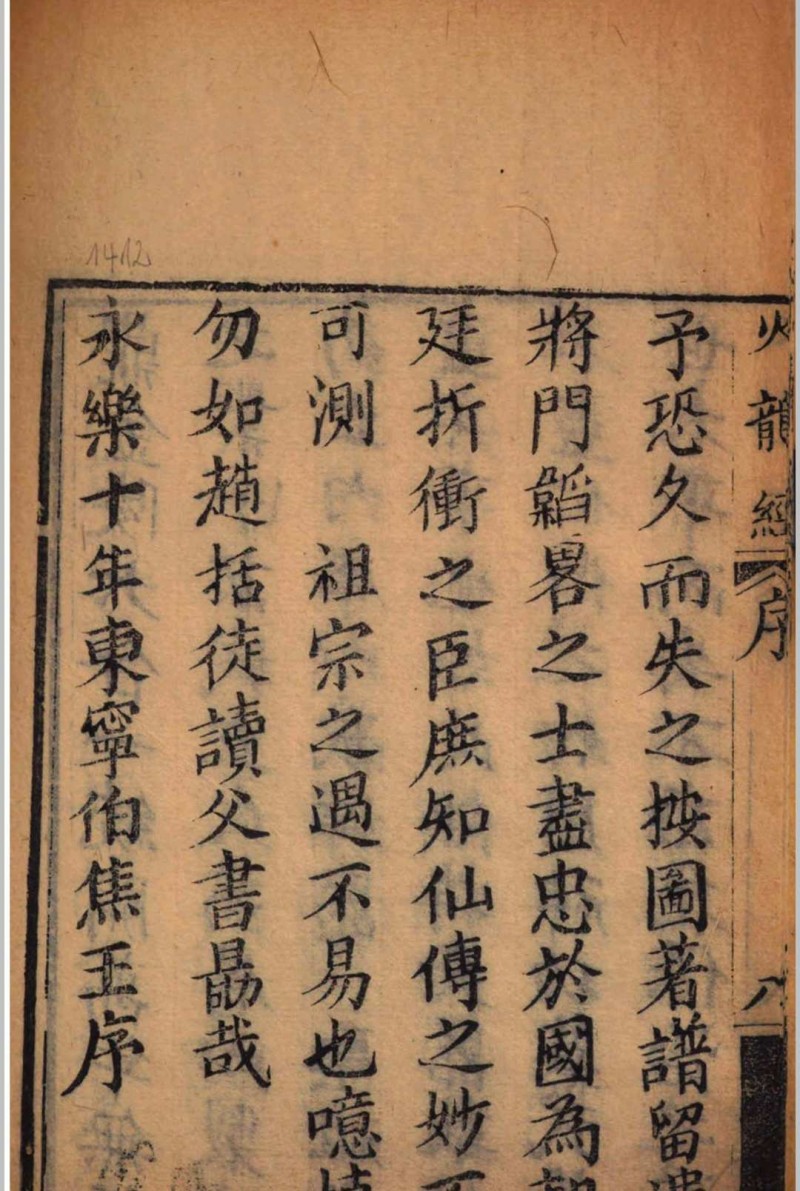 火龍經
序
八
予恐久而失之按圖著譜留遺
將門韜畧之士盡忠於國為朝
廷折衝之臣庶知仙傳之妙不
可測　祖宗之遇不易也噫
勿如趙括徒讀父書勗哉
永樂十年東寧伯焦玉序
1412